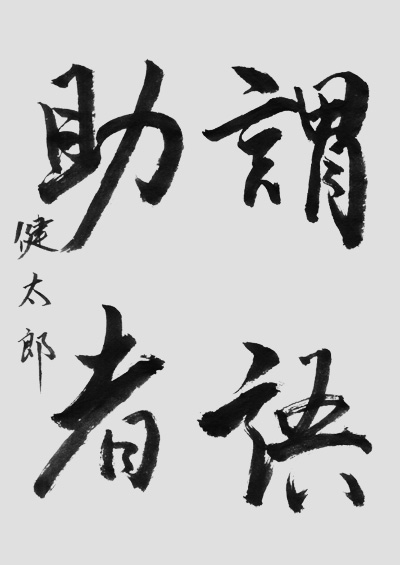 謂語
助者
健太郎